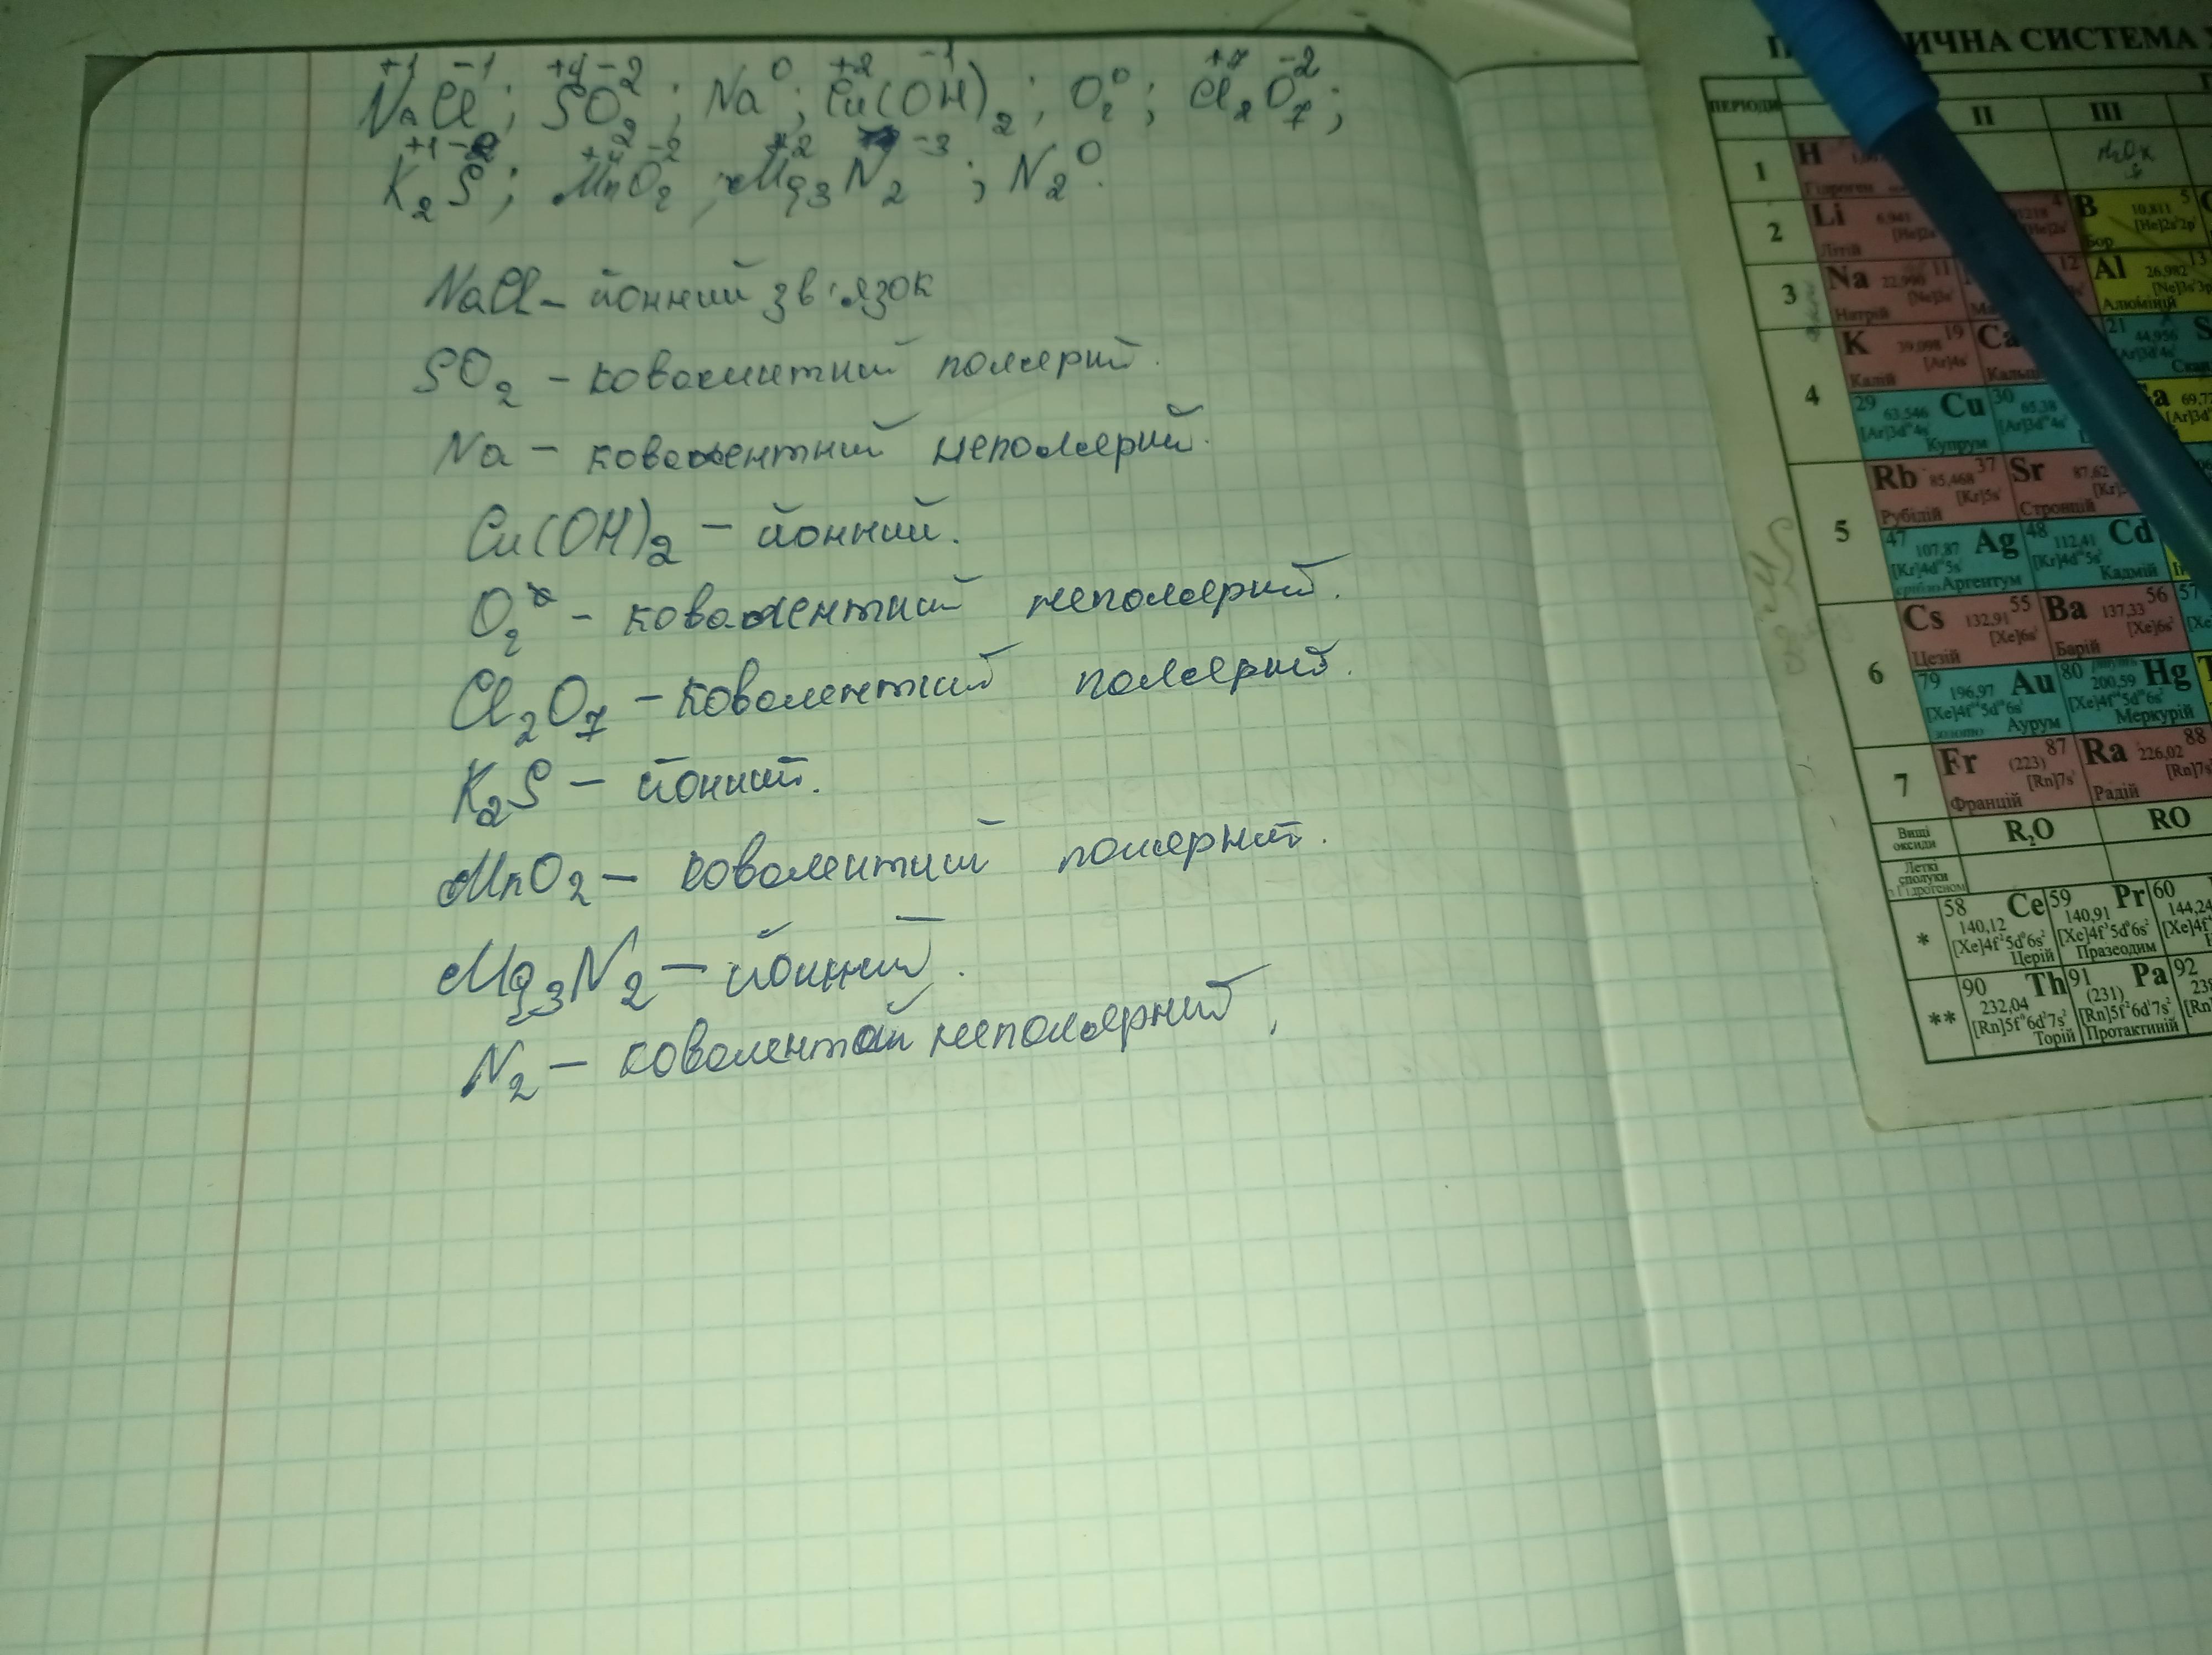 +1 -1 +4 -2 0 +2 -1 0 +7 -2
NaCl; SO2; Na; Cu(OH)2; O2; Cl2O7;
+1 -2 -2 +2 -3 0
K2S; MnO2; Mg3N2; N2.
NaCl – йонний зв'язок
SO2 – ковалентний полярий.
Na – ковалентний неполярий.
Cu(OH)2 – йонний.
O2 – ковалентний неполярий.
Cl2O7 – ковалентний полярий.
K2S – йонний.
MnO2 – ковалентний полярний.
Mg3N2 – йонний.
N2 – неполярний
ИЧНА СИСТЕМА
ПЕРІОДИ
II III
1 H Гідроген
2 Li 6,941 Літій B 10,811 5 [He]2s²2p¹ Бор
3 Na 22,990 11 [Ne]3s¹ Натрій 12 Al 26,982 13 Алюміній
4 K 39,098 19 [Ar]4s¹ Калій Ca 21 44,956
29 63,546 Cu Купрум 30 65,38 69,7
5 Rb 85,468 37 [Kr]5s¹ Рубідій Sr 87,62 Стронцій
47 107,87 Ag [Kr]4d¹⁰5s¹ срібло Аргентум 48 112,41 Cd [Kr]4d¹⁰5s² Кадмій
6 Cs 132,91 55 [Xe]6s¹ Цезій Ba 137,33 56 [Xe]6s² Барій 57
79 196,97 Au [Xe]4f¹⁴5d¹⁰6s¹ золото Аурум 80 200,59 Hg [Xe]4f¹⁴5d¹⁰6s² Меркурій
7 Fr (223) 87 [Rn]7s¹ Францій Ra 226,02 88 [Rn]7s² Радій
Вищі оксиди R2O RO
Леткі сполуки з Гідрогеном
* 58 Ce 140,12 [Xe]4f²5d⁰6s² Церій 59 Pr 140,91 [Xe]4f³5d⁰6s² Празеодим 60 144,24
** 90 Th 232,04 [Rn]5f⁰6d²7s² Торій 91 Pa (231) [Rn]5f²6d¹7s² Протактиній 92